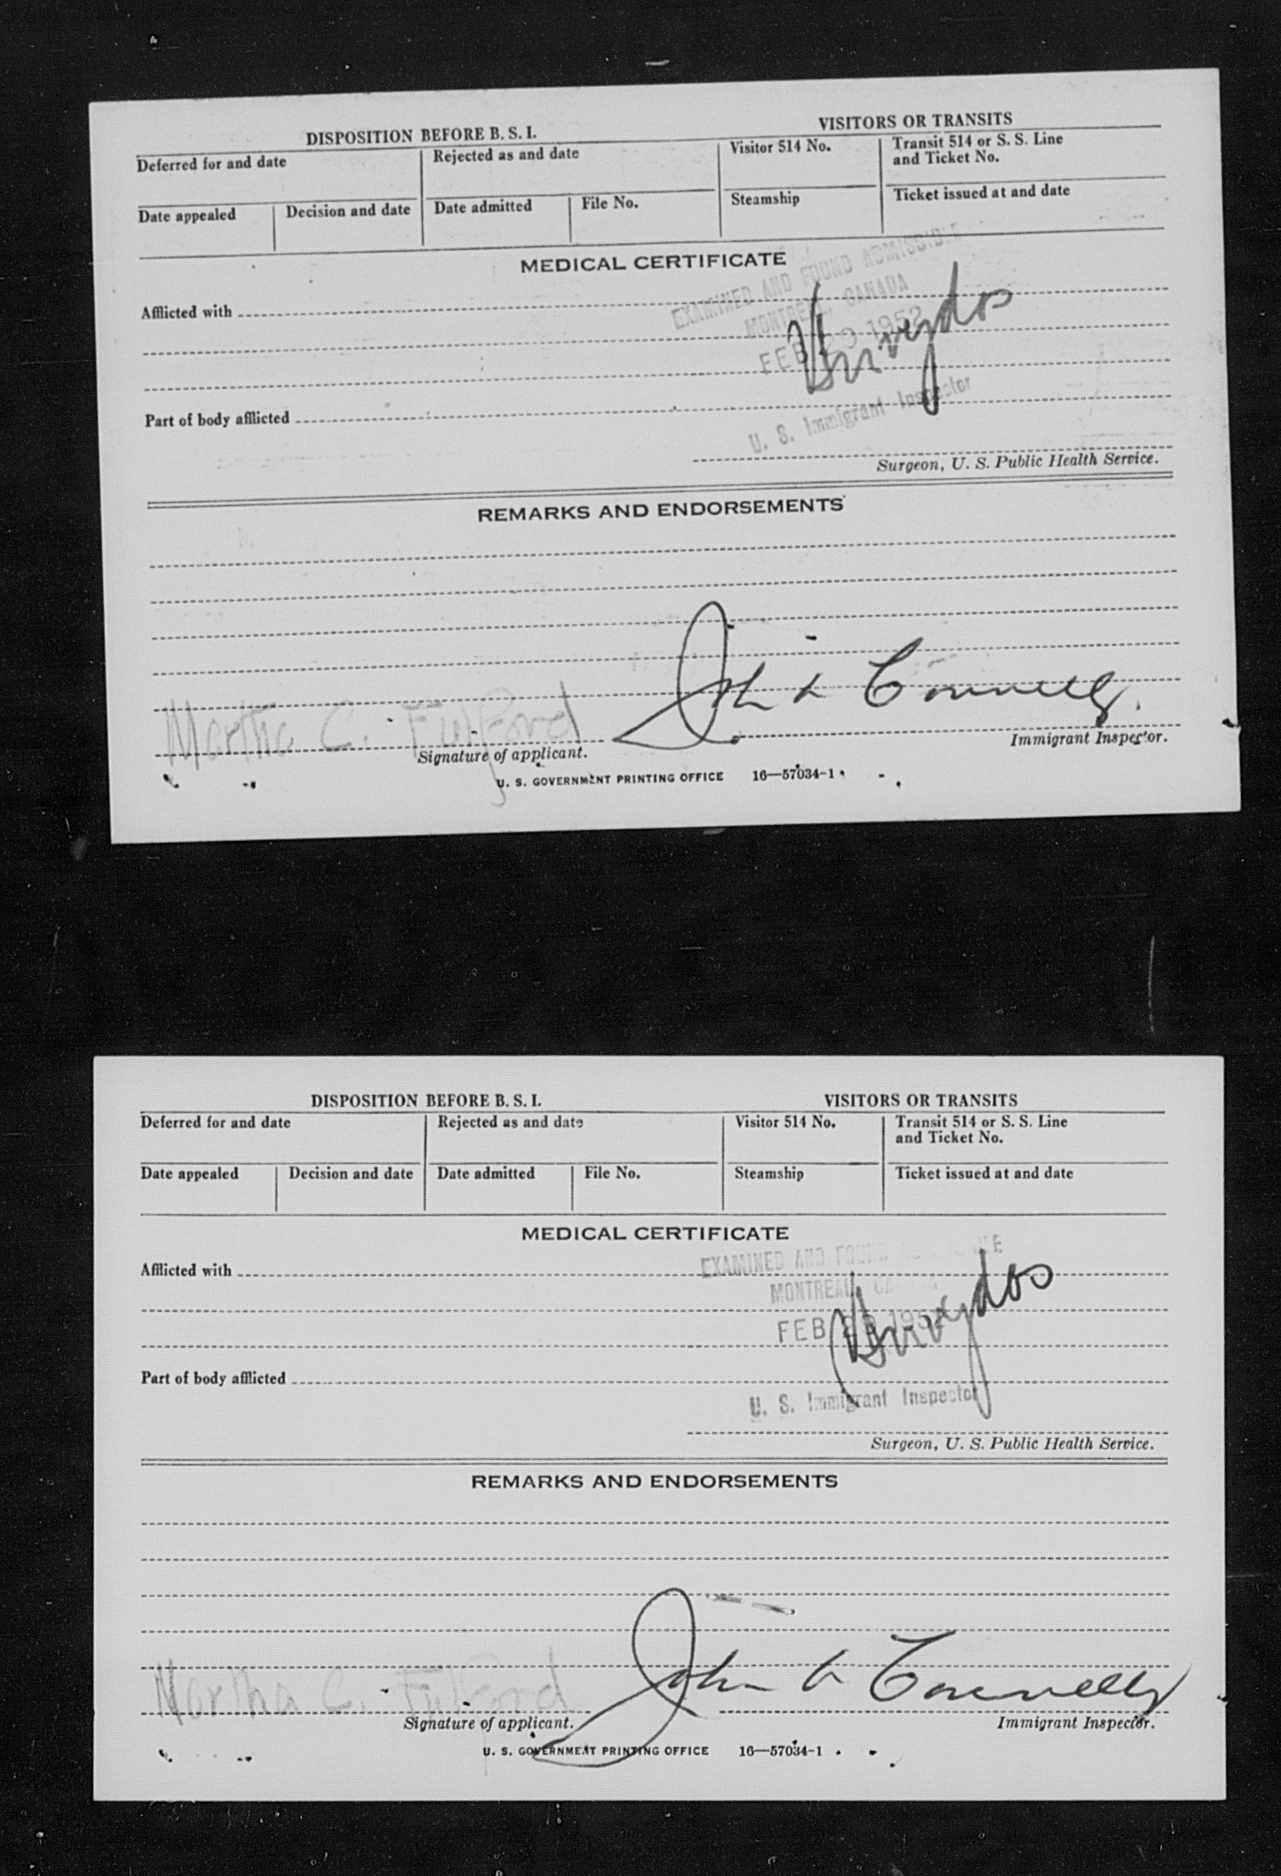 DISPOSITION BEFORE B. S. I. VISITORS OR TRANSITS
Deferred for and date Rejected as and date Visitor 514 No. Transit 514 or S. S. Line
and Ticket No.
Date appealed Decision and date Date admitted File No. Steamship Ticket issued at and date
MEDICAL CERTIFICATE
EXAMINED AND FOUND ADMISSIBLE
Afflicted with
MONTREAL, CANADA
FEB 1952
Part of body afflicted
U. S. Immigrant Inspector
Surgeon, U. S. Public Health Service.
REMARKS AND ENDORSEMENTS
Martha C. Fulford John L Connelly.
Signature of applicant. Immigrant Inspector.
U. S. GOVERNMENT PRINTING OFFICE 16—57034-1
DISPOSITION BEFORE B. S. I. VISITORS OR TRANSITS
Deferred for and date Rejected as and date Visitor 514 No. Transit 514 or S. S. Line
and Ticket No.
Date appealed Decision and date Date admitted File No. Steamship Ticket issued at and date
MEDICAL CERTIFICATE
EXAMINED AND FOUND
Afflicted with
MONTREAL,
FEB 1952
Part of body afflicted
U. S. Immigrant Inspector
Surgeon, U. S. Public Health Service.
REMARKS AND ENDORSEMENTS
Martha C. Fulford John L Connelly
Signature of applicant. Immigrant Inspector.
U. S. GOVERNMENT PRINTING OFFICE 16—57034-1